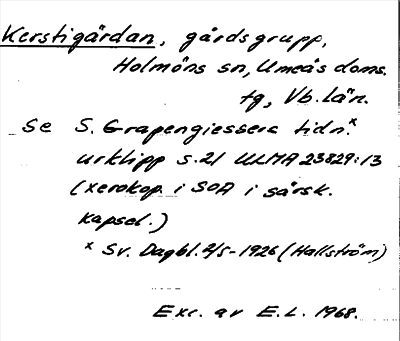 Kerstigårdan, gårdsgrupp,
Holmöns sn, Umeås doms.
tg, Vb. län.
Se S. Grapengiessers tidn.x
urklipp s. 21 ULMA 23829:13
(xerokop. i SOA i särsk.
kapsel.)
x Sv. Dagbl. 2/5-1926 (Hallström)
Exc. av E.L. 1968.